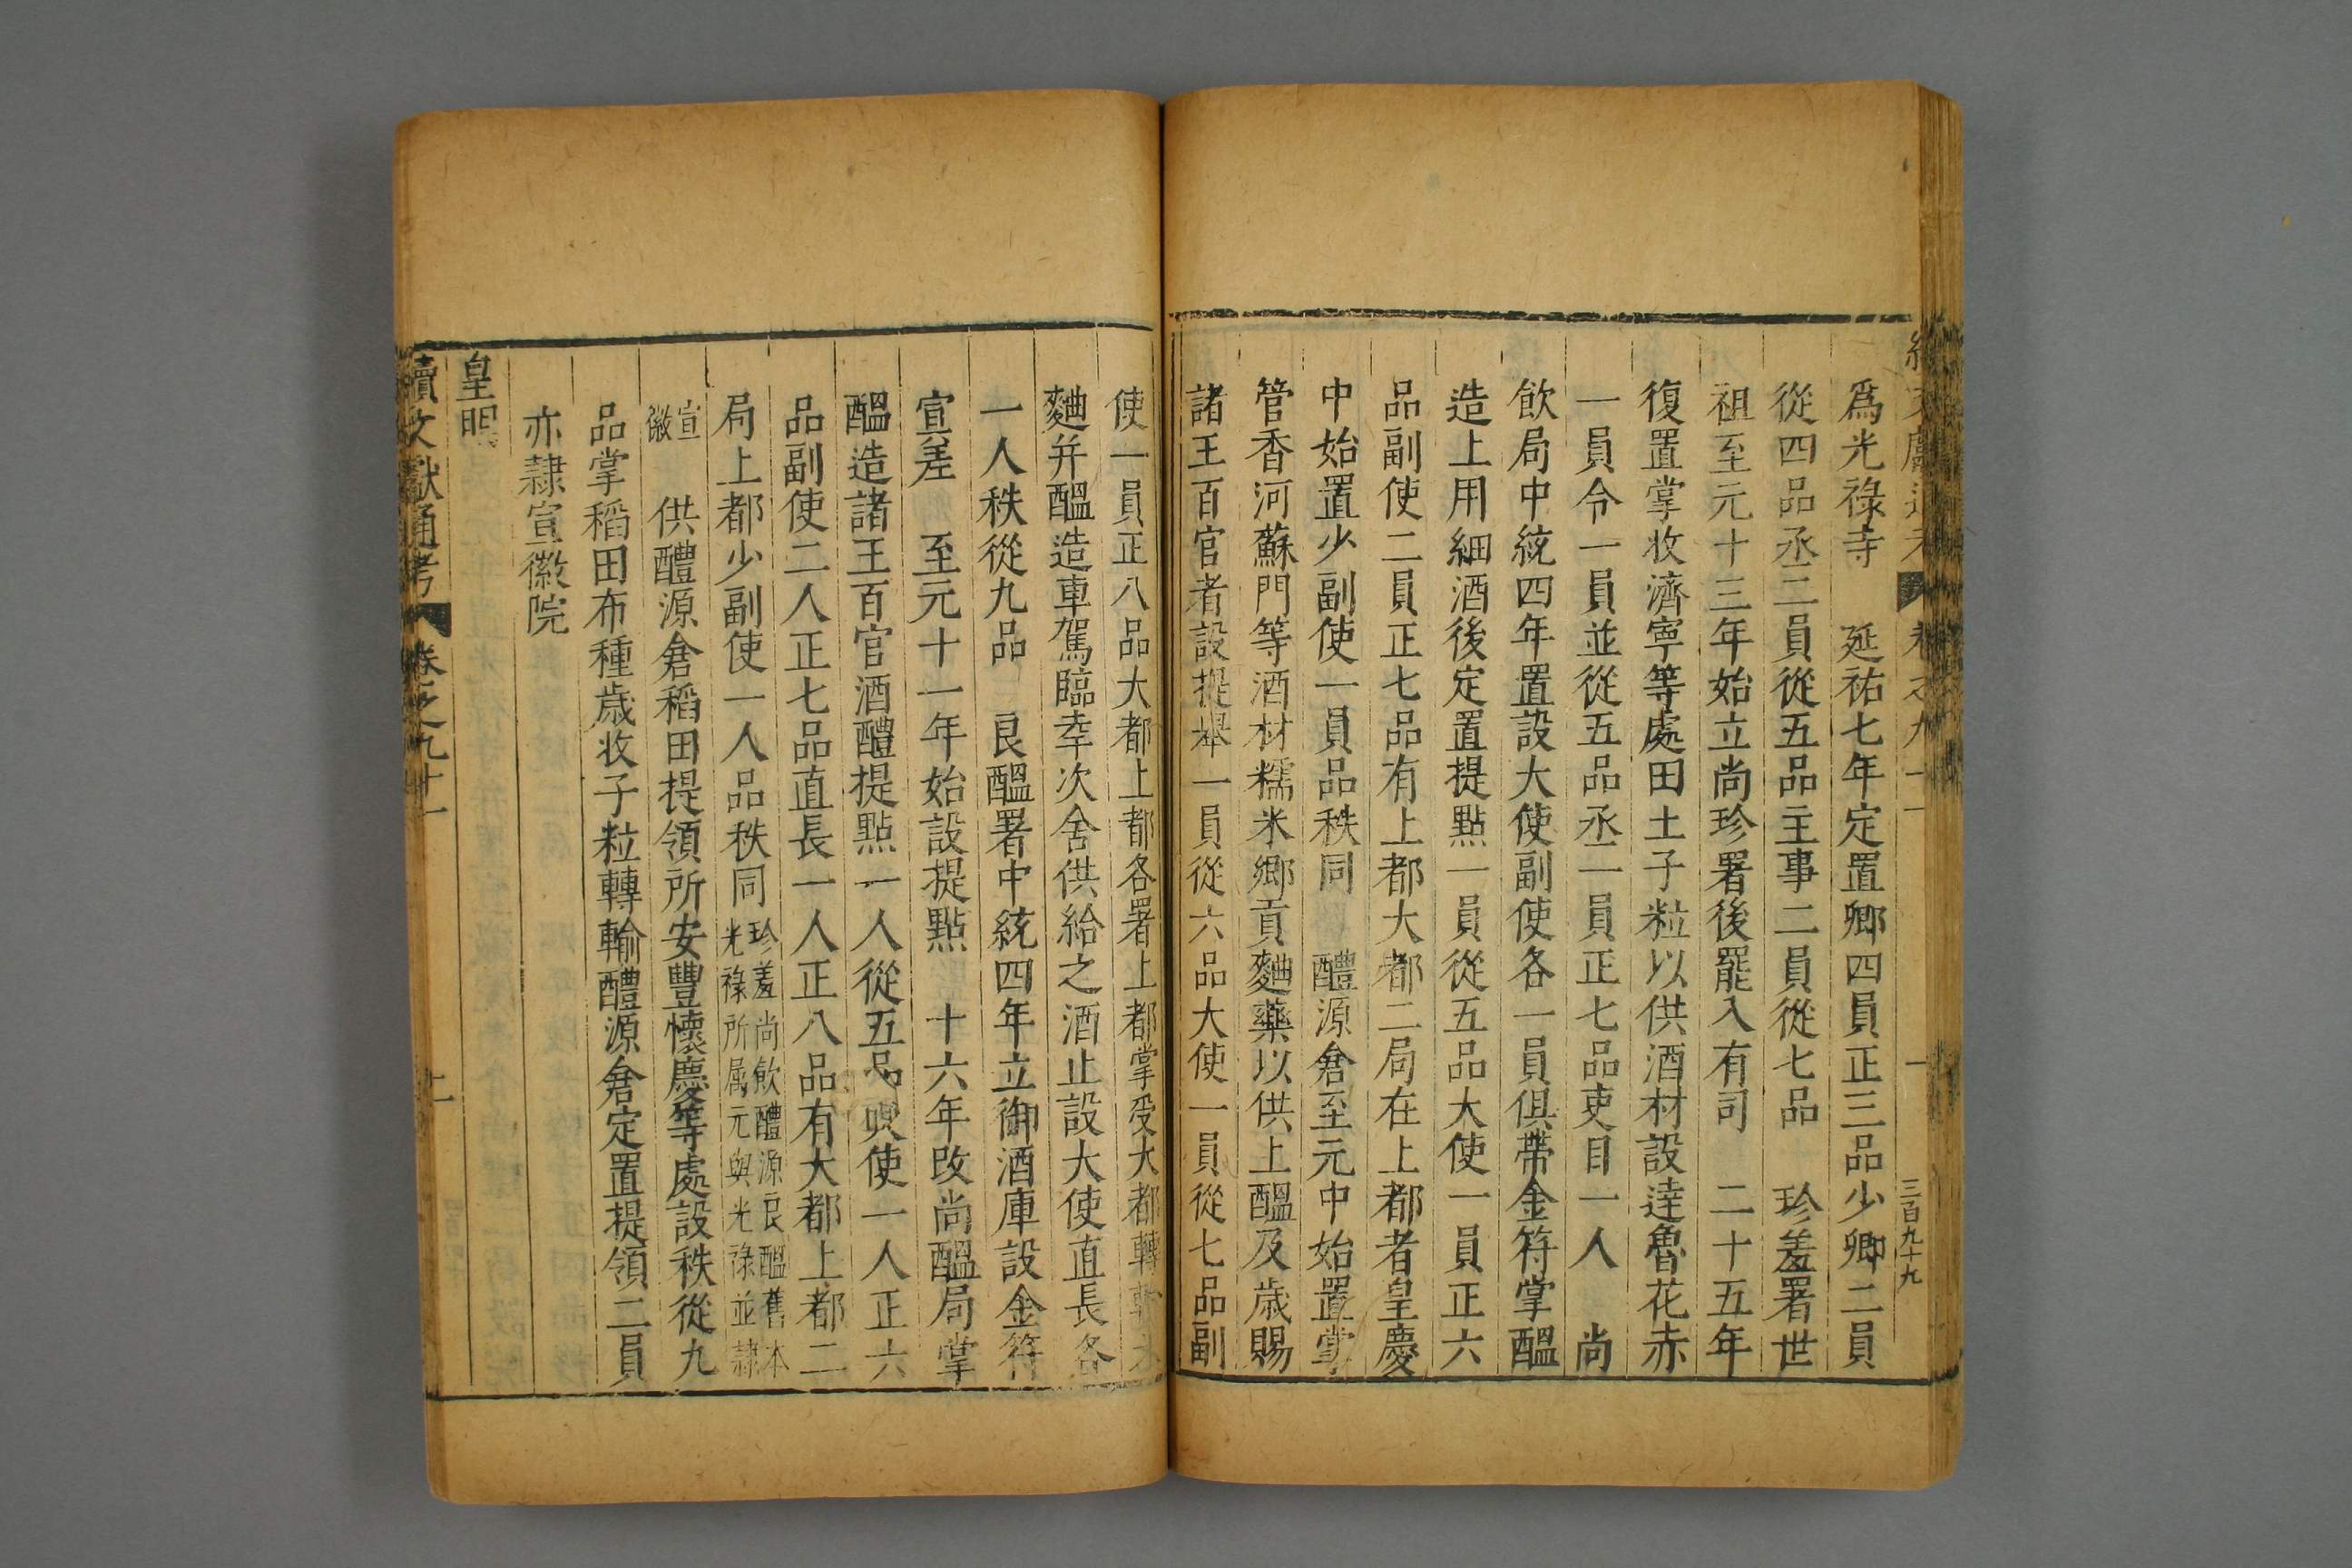 卷之九十一 一 三百九十九
爲光祿寺　延祐七年定置卿四員正三品少卿二員
從四品丞二員從五品主事二員從七品　珍羞署世
祖至元十三年始立尚珍署後罷入有司　二十五年
復置掌收濟寧等處田土子粒以供酒材設達魯花赤
一員令一員並從五品丞二員正七品吏目一人　尚
飲局中統四年置設大使副使各一員俱帶金符掌醖
造上用細酒後定置提點一員從五品大使一員正六
品副使二員正七品有上都大都二局在上都者皇慶
中始置少副使一員品秩同　醴源倉至元中始置掌
管香河蘇門等酒材糯米鄉貢麯藥以供上醖及歲賜
諸王百官者設提舉一員從六品大使一員從七品副
使一員正八品大都上都各署上都掌受大都轉
麯并醖造車駕臨幸次舍供給之酒止設大使直長各
一人秩從九品　良醖署中統四年立御酒庫設金符
宣差　至元十一年始設提點　十六年改尚醖局掌
醖造諸王百官酒醴提點一人從五品使一人正六
品副使二人正七品直長一人正八品有大都上都二
局上都少副使一人品秩同珍羞尚飲醴源良醖舊本光祿所属元與光祿並隷
宣徽　供醴源倉稻田提領所安豐懷慶等處設秩從九
品掌稻田布種歲收子粒轉輸醴源倉定置提領二員
亦隷宣徽院
皇明
續文獻通考 卷之九十一 二